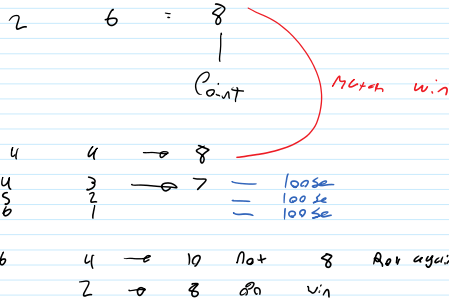 2 6 = 8
Point
Match win
4 4 → 8
4 3 → 7 — loose
5 2 — loose
6 1 — loose
6 4 → 10 not 8 Rol again
2 → 8 win